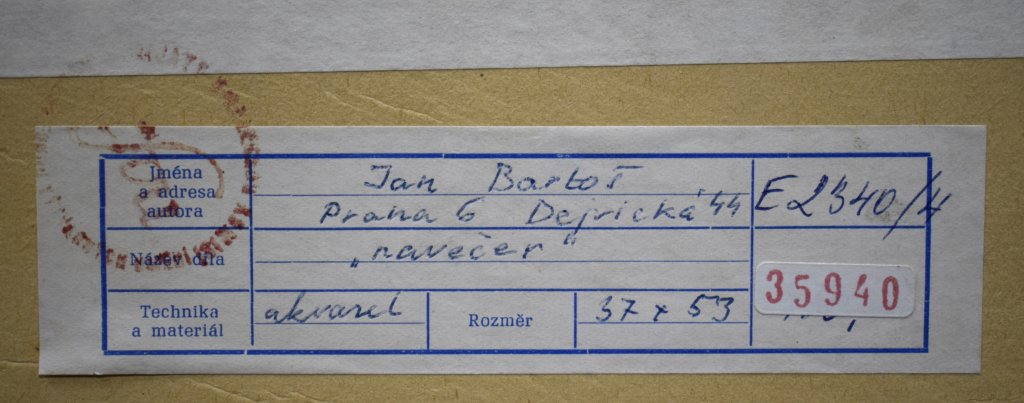 Jména
a adresa
autora
Jan Bartoš
Praha 6 Dejvická 44
E 2340/4
Název díla
„navečer“
35940
Technika
a materiál
akvarel
Rozměr
37 x 53